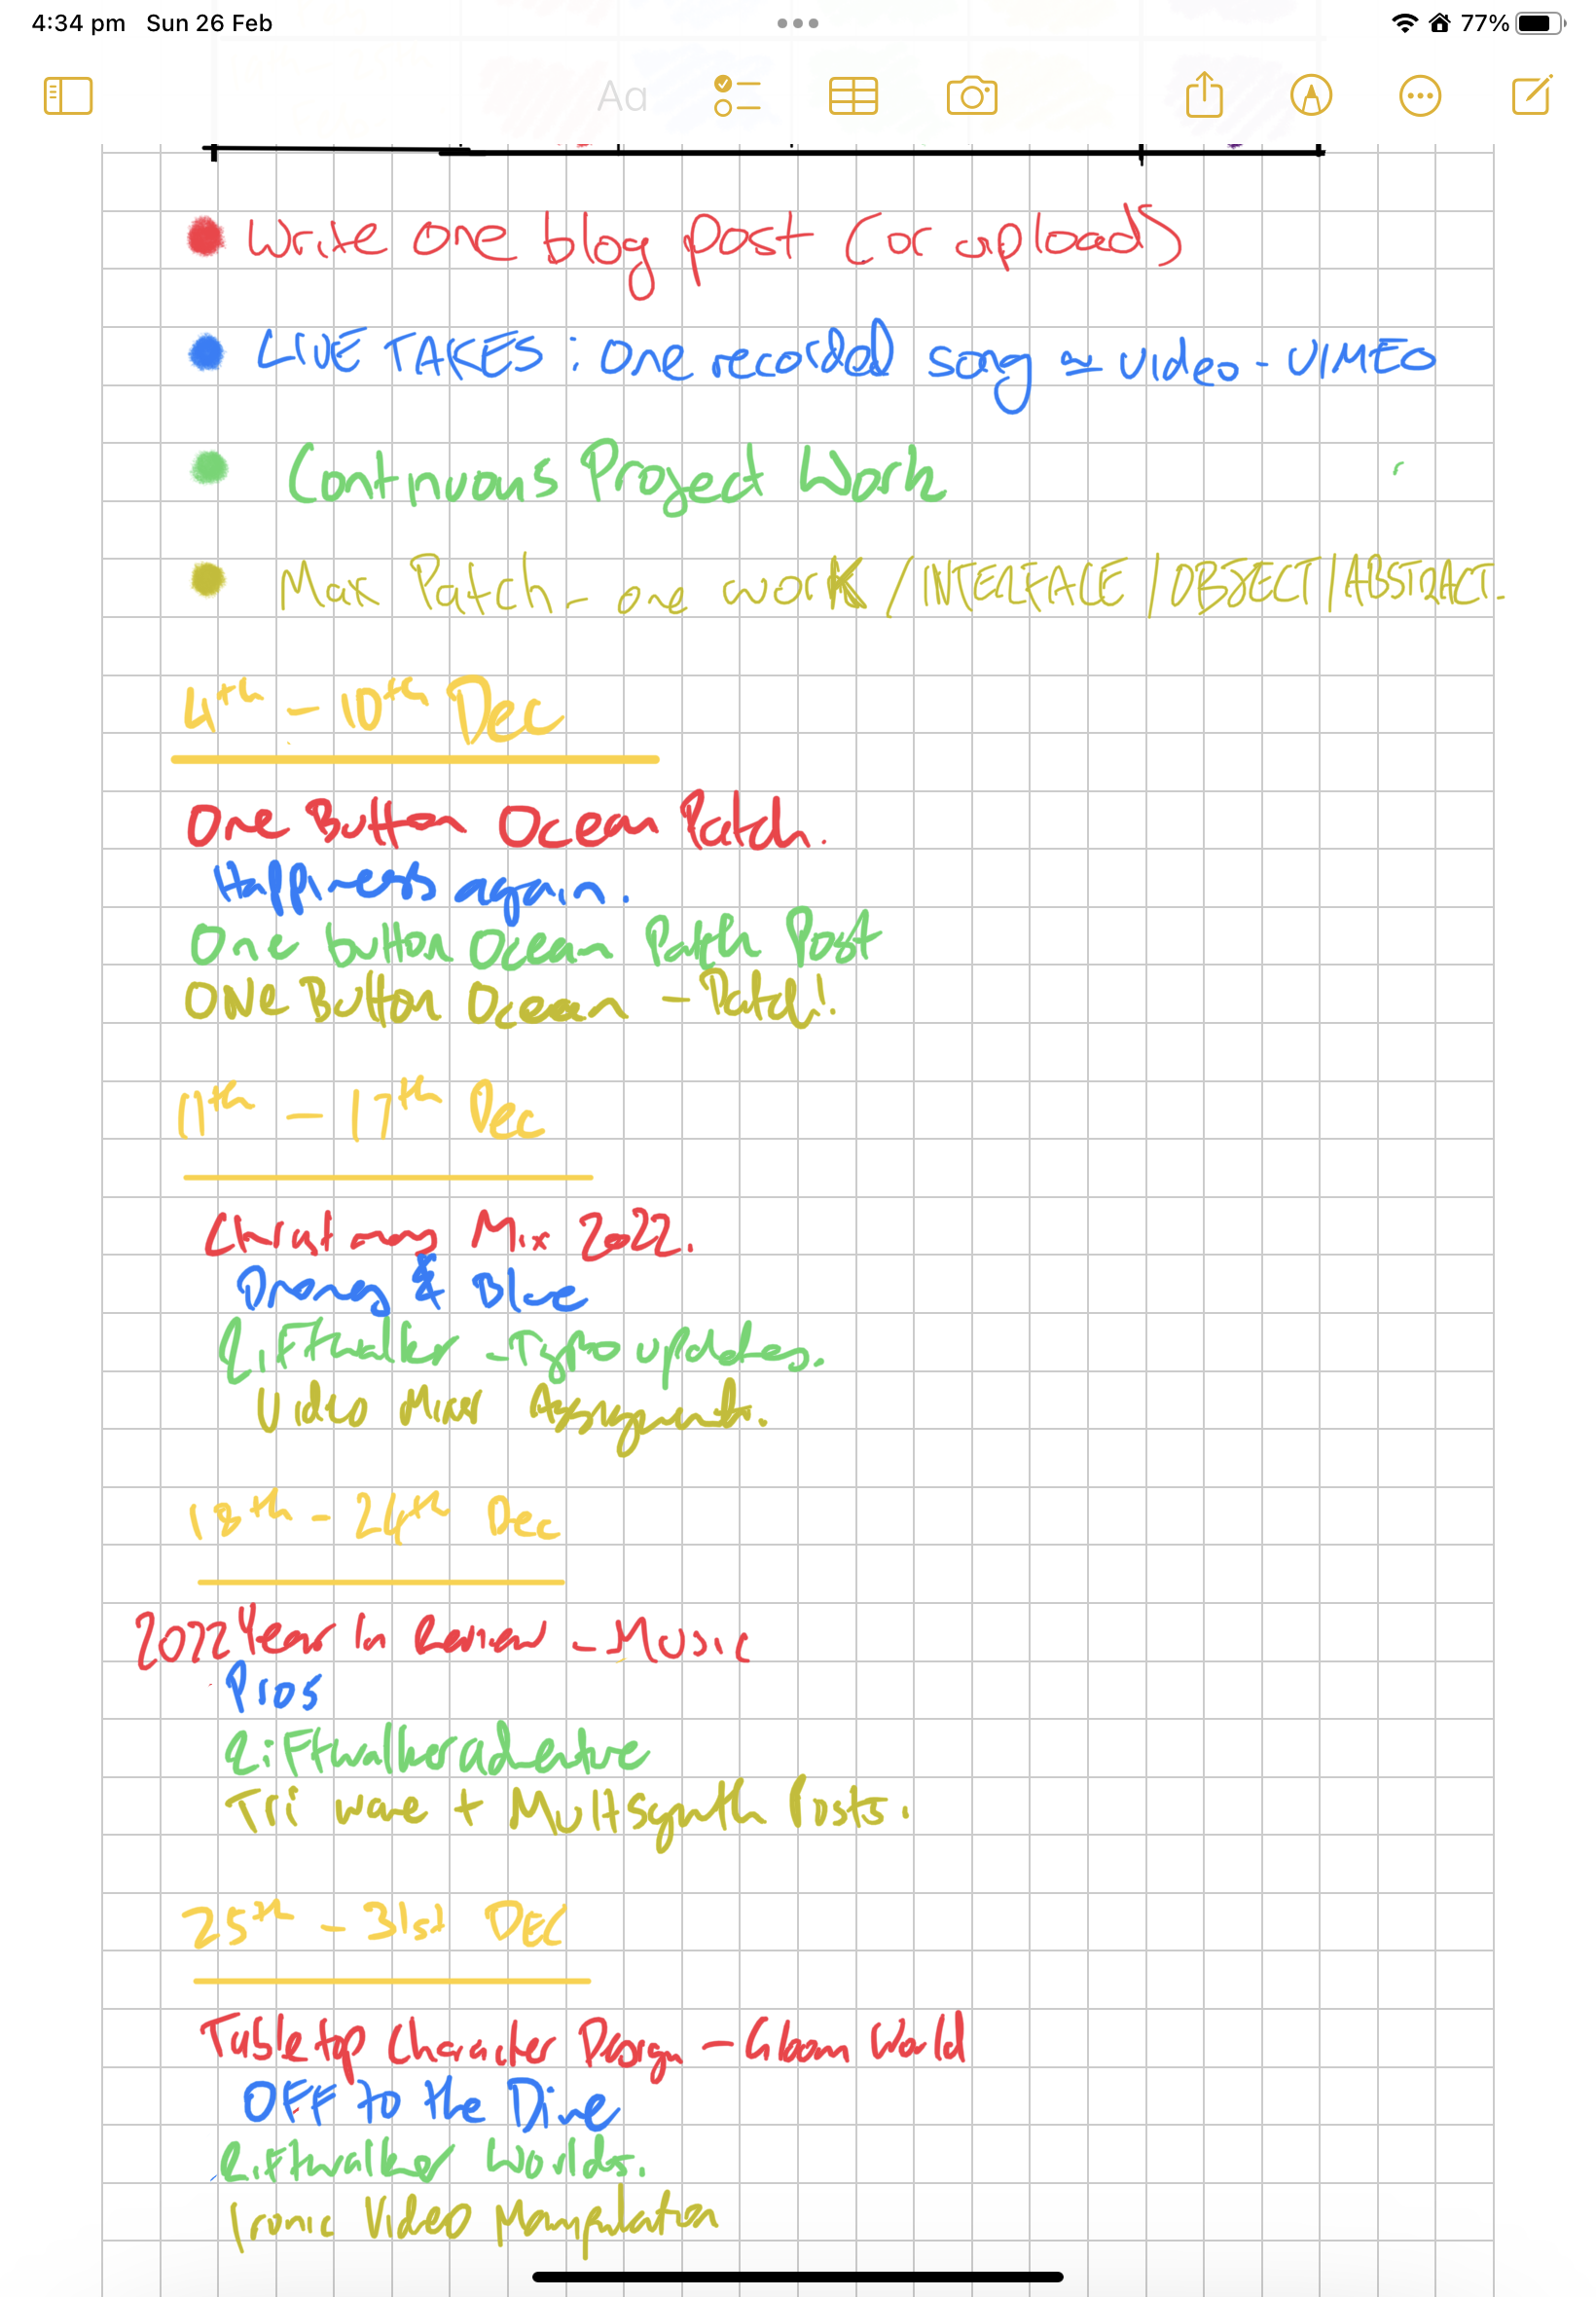 4:34 pm Sun 26 Feb 77%
Aa
Write one blog post (or upload)
LIVE TAKES: One recorded song ≃ video - VIMEO
Continuous Project Work
Max Patch - one work / INTERFACE / OBJECT / ABSTRACT.
4th - 10th Dec
One Button Ocean Patch.
Happiness again.
One button Ocean Patch Post
ONe Button Ocean - Patch!
11th - 17th Dec
Christmas Mix 2022.
& Blue
Riftwalker - Typo updates.
Video Mixer Assignment.
18th - 24th Dec
2022 Year In Review - Music
Pros
Riftwalker adventure
Tri wave + Multisynth Posts.
25th - 31st DEC
Tabletop Character Design - Gloom World
OFF to the
Riftwalker Worlds.
Ironic Video Manipulation